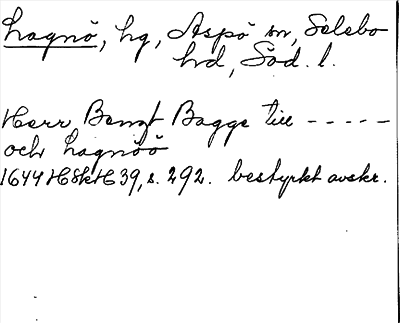 Lagnö, hg, Aspö sn, Selebo
hd, Söd. l.
Herr Bengt Bagge till - - - - -
och Lagnöö
1644 HSkH 39, s. 292. bestyrkt avskr.